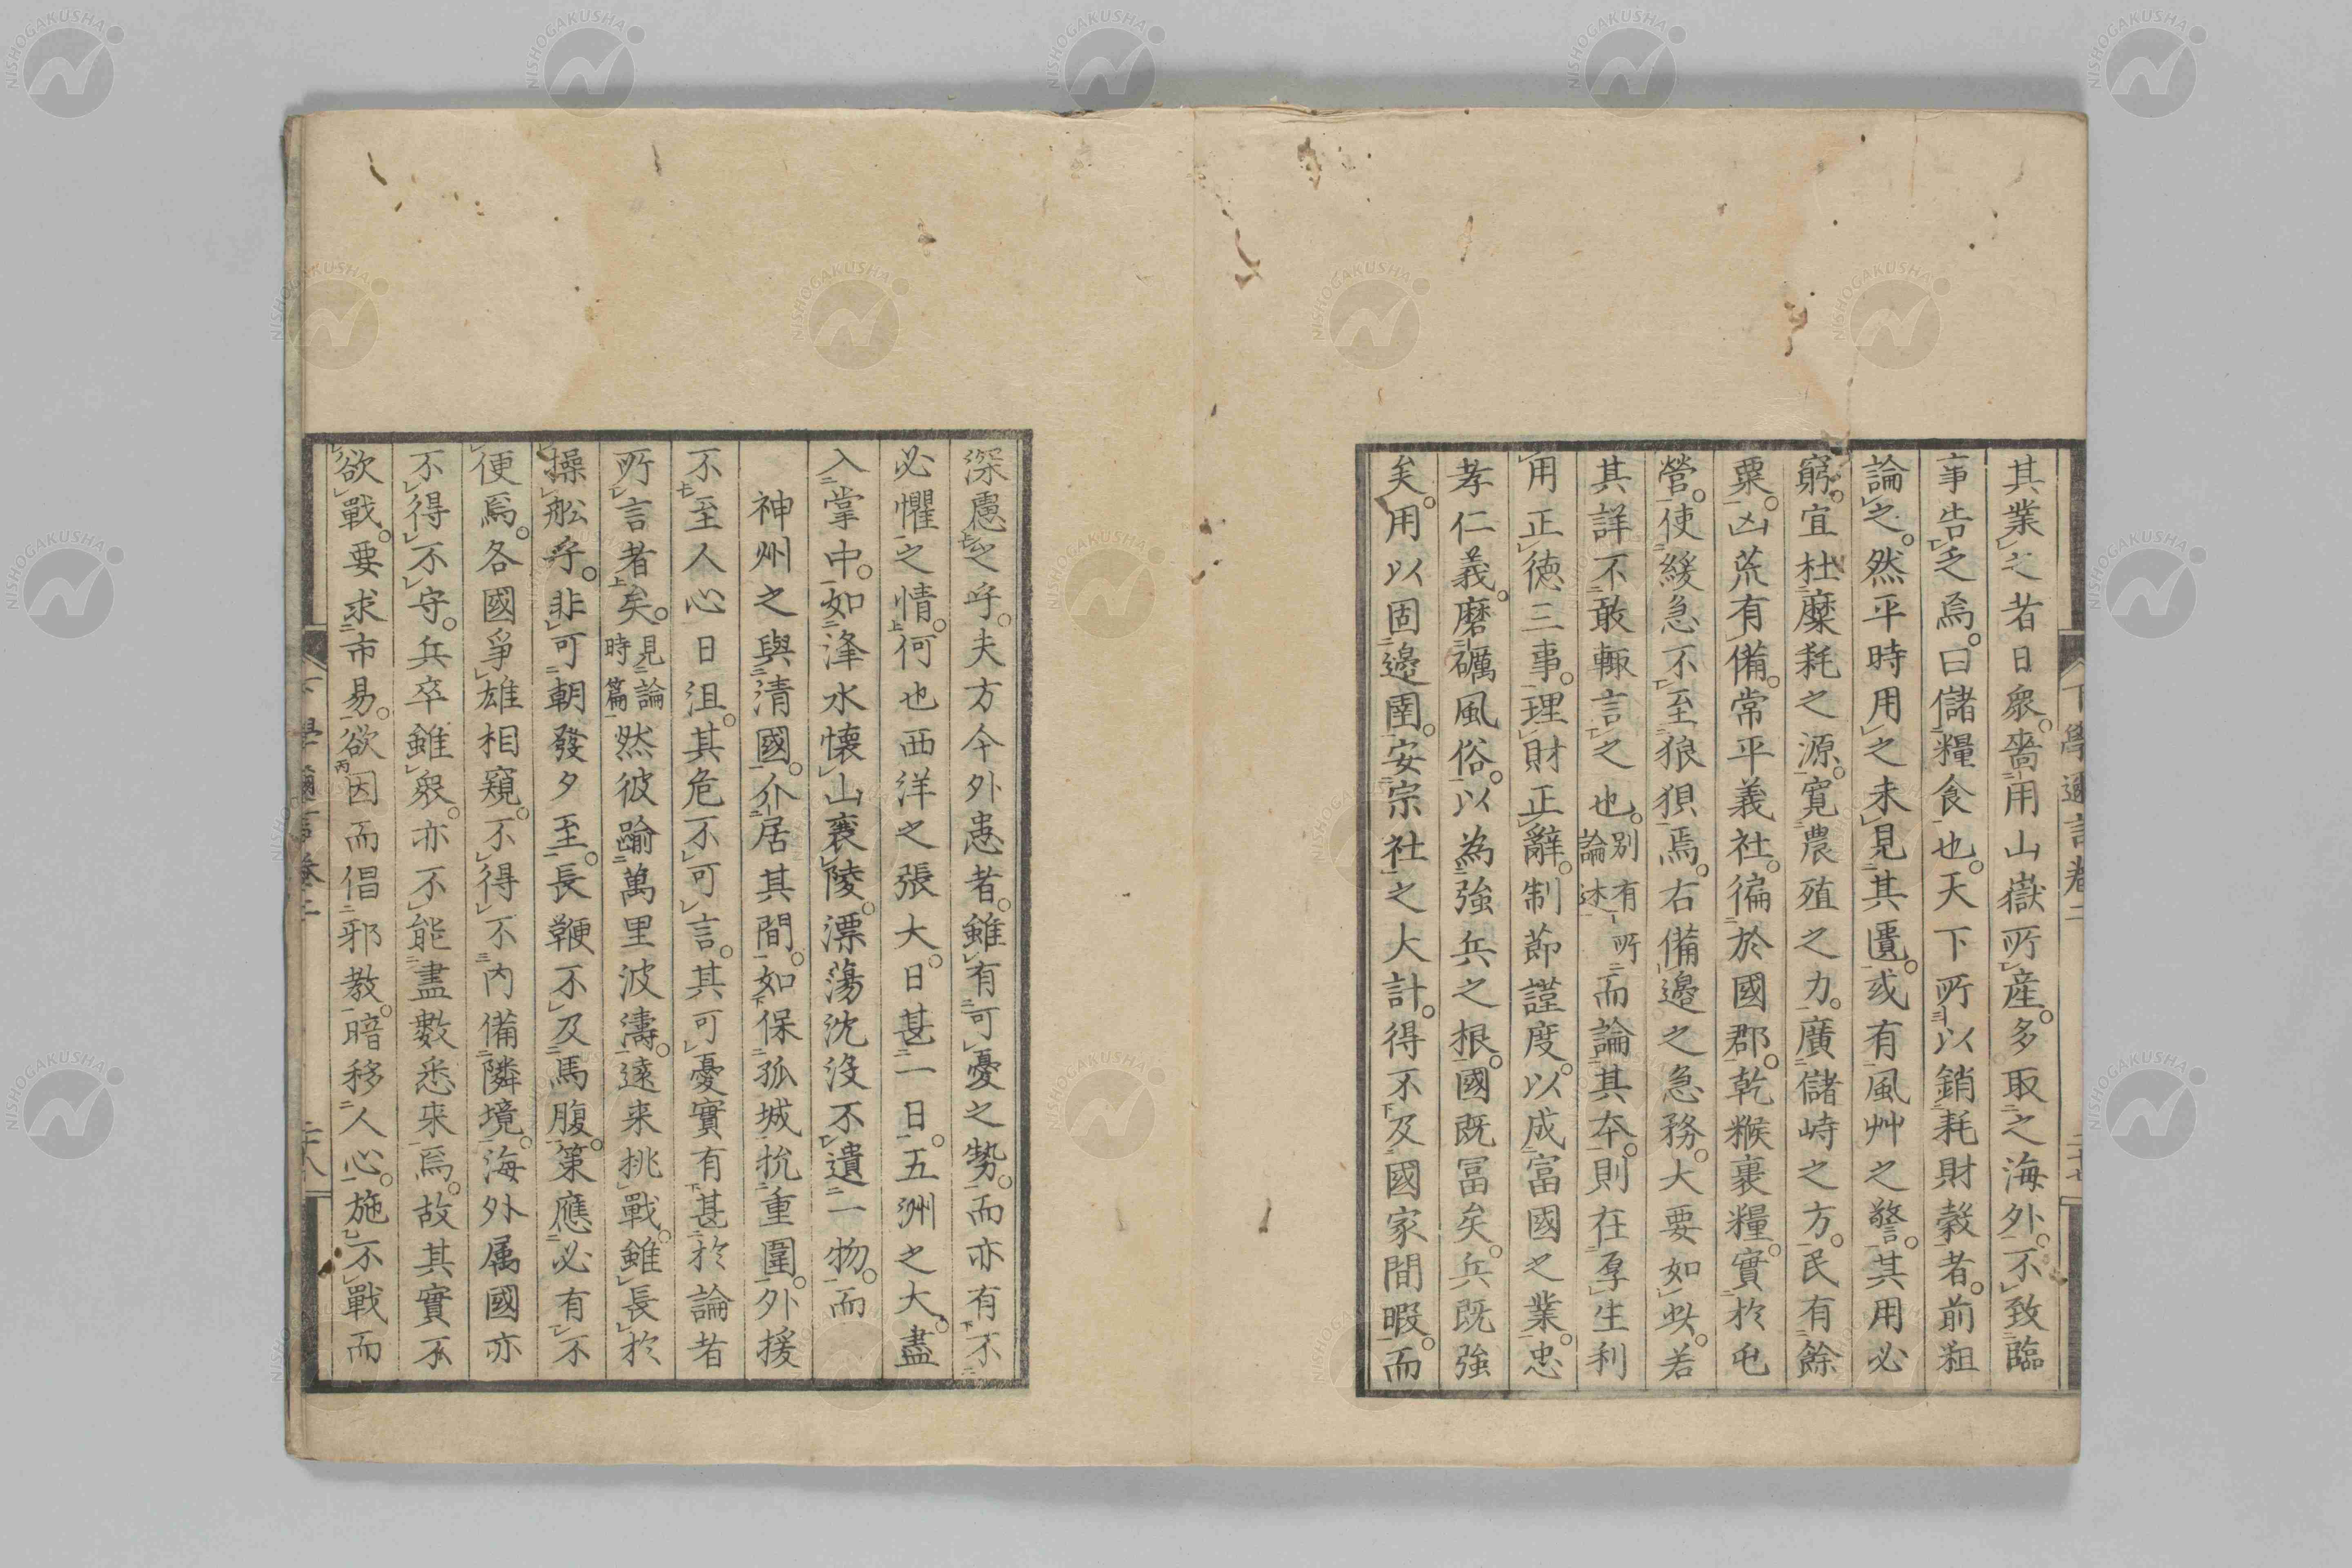 其業之者日衆。嗇用山嶽所産。多取之海外。不致臨
事告乏焉。曰儲糧食也。天下所以銷耗財穀者。前粗
論之。然平時用之未見其匱。或有風艸之警。其用必
窮。宜杜糜耗之源。寛農殖之力。廣儲峙之方。民有餘
粟。凶荒有備。常平義社。徧於國郡。乾糇裹糧。實於屯
營。使緩急不至狼狽焉。右備邊之急務。大要如此。若
其詳不敢輙言之也。別有所論述而論其本。則在厚生利
用正德三事。理財正辭。制節謹度。以成富國之業。忠
孝仁義。磨礪風俗。以為強兵之根。國既冨矣。兵既強
矣。用以固邊圉。安宗社之大計。得不及國家間暇。而
下學邇言卷二
二十七
深慮之乎。夫方今外患者。雖有可憂之勢。而亦有不
必懼之情。何也西洋之張大。日甚一日。五洲之大。盡
入掌中。如洚水懷山襄陵。漂蕩沈沒不遺一物。而
神州之與清國。介居其間。如保孤城抗重圍。外援
不至人心日沮。其危不可言。其可憂實有甚於論者
所言者矣。見論時篇然彼踰萬里波濤。遠来挑戰。雖長於
操舩乎。非可朝發夕至。長鞭不及馬腹。策應必有不
便焉。各國爭雄相窺。不得不内備隣境。海外属國亦
不得不守。兵卒雖衆。亦不能盡數悉来焉。故其實不
欲戰。要求市易。欲因而倡邪教。暗移人心。施不戰而
下學邇言卷二
二十八
NISHOGAKUSHA